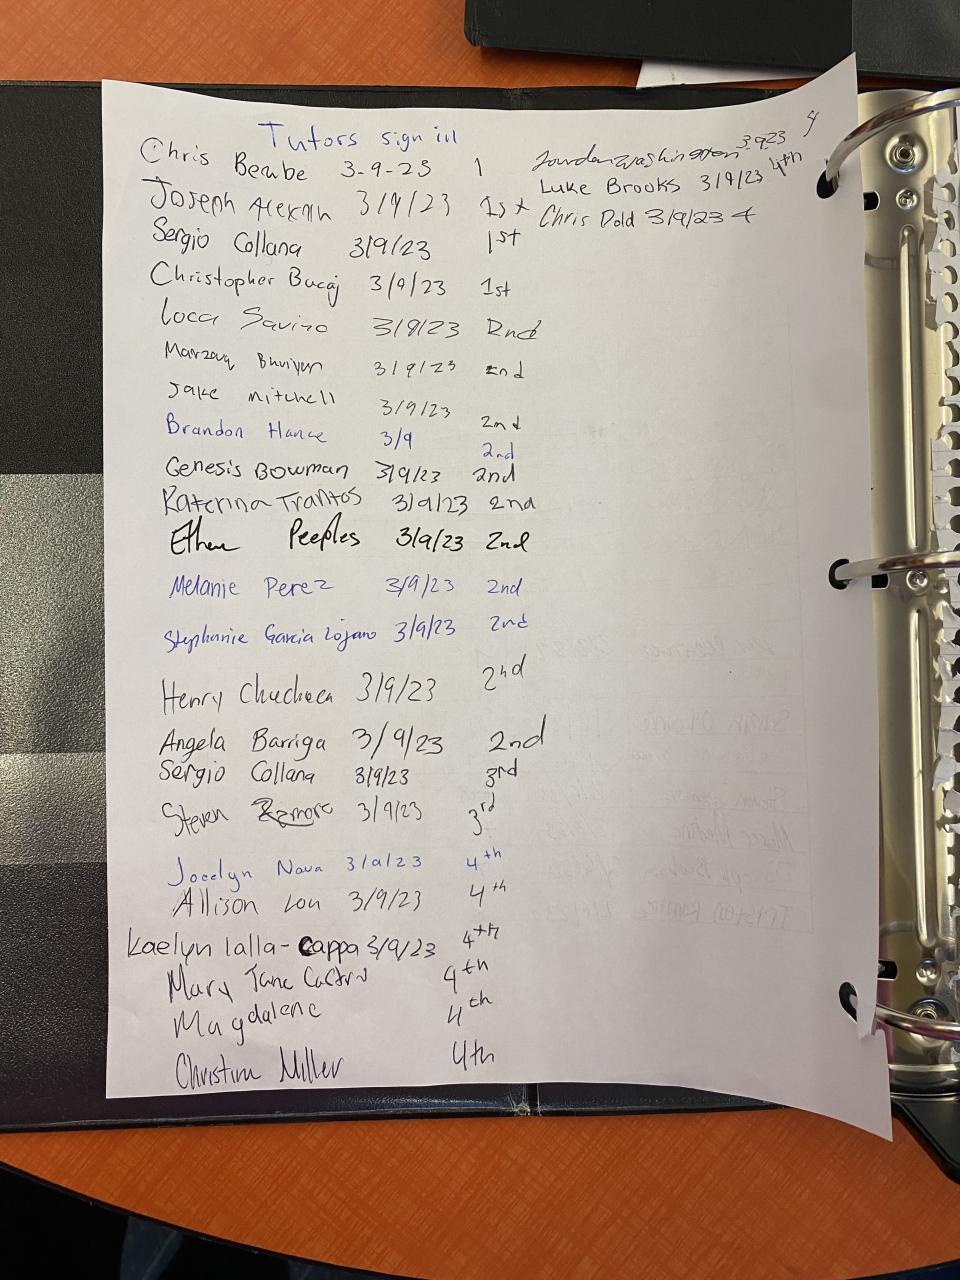 Tutors sign in
Chris Beabe 3-9-23 1
Joseph 3/9/23 1st
Sergio Collana 3/9/23 1st
Christopher Bucaj 3/9/23 1st
Luca Savino 3/9/23 2nd
Marzouq Bhuiyan 3/9/23 2nd
Jake Mitchell 3/9/23 2nd
Brandon Hance 3/9 2nd
Genesis Bowman 3/9/23 2nd
Katerina Trantos 3/9/23 2nd
Ethan Peeples 3/9/23 2nd
Melanie Perez 3/9/23 2nd
Stephanie Garcia Lojano 3/9/23 2nd
Henry Chucheca 3/9/23 2nd
Angela Barriga 3/9/23 2nd
Sergio Collana 3/9/23 3rd
Steven Zamora 3/9/23 3rd
Jocelyn Nava 3/9/23 4th
Allison Lou 3/9/23 4th
Kaelyn Lalla-Cappa 3/9/23 4th
Mary Jane Castro 4th
Magdalene 4th
Christina Miller 4th
Jourdan Washington 3.9.23 4
Luke Brooks 3/9/23 4th
Chris Dold 3/9/23 4